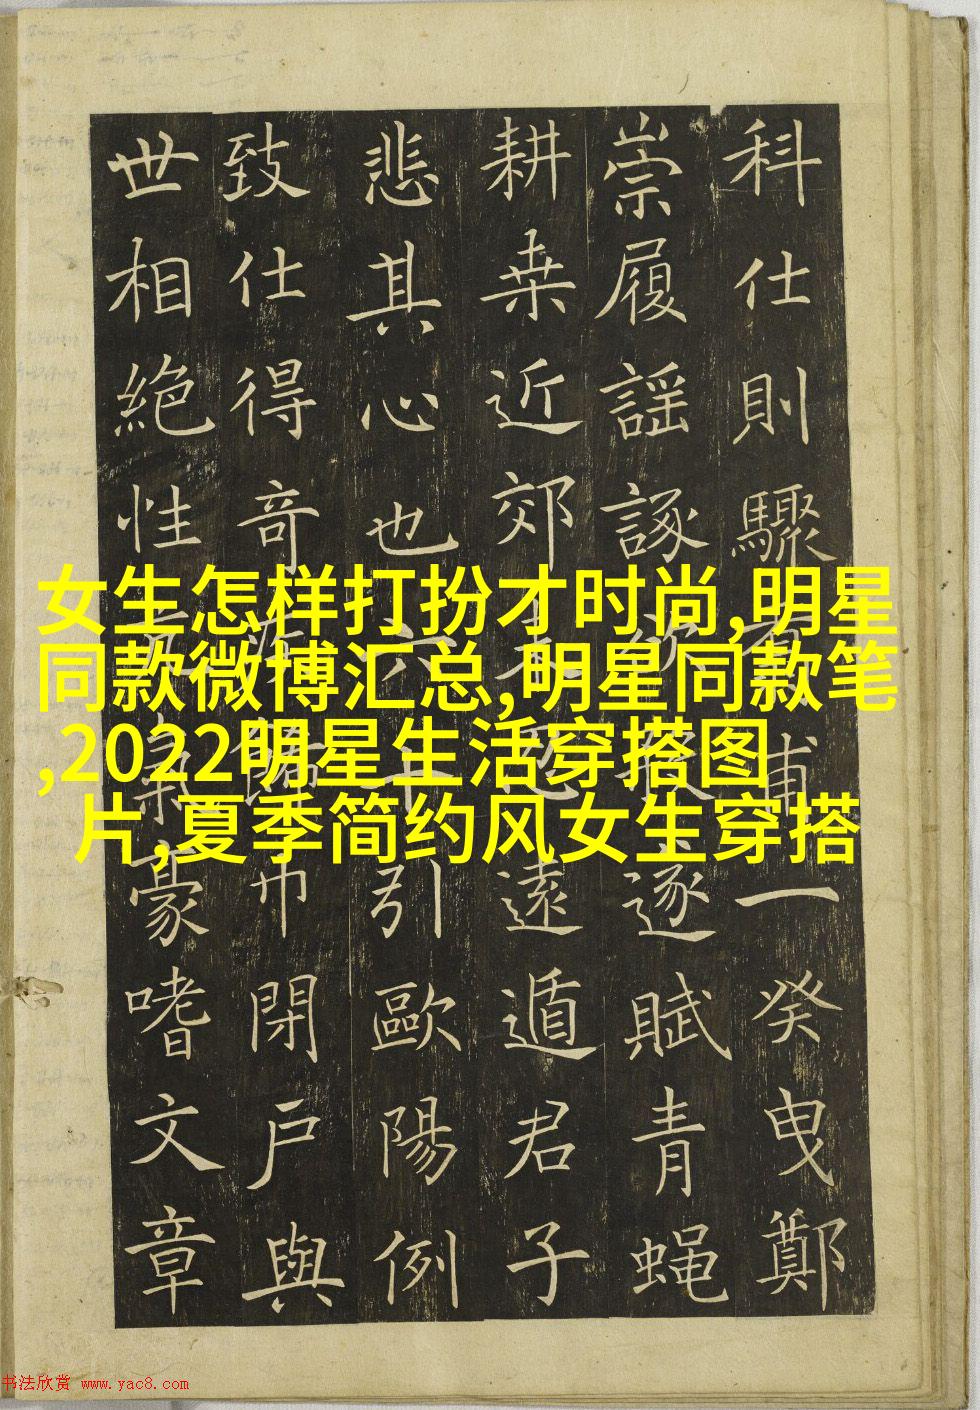 科仕則驟有甫一癸曳鄭
崇履謡諑逐賦青蝇
耕桒近郊遠遁君子
悲其心也六引歐陽例
致仕得奇巾閉戶與
世相絶性豪嗜文章
女生怎样打扮才时尚,明星
同款微博汇总,明星同款笔
,2022明星生活穿搭图
片,夏季简约风女生穿搭
书法欣赏 www.yac8.com